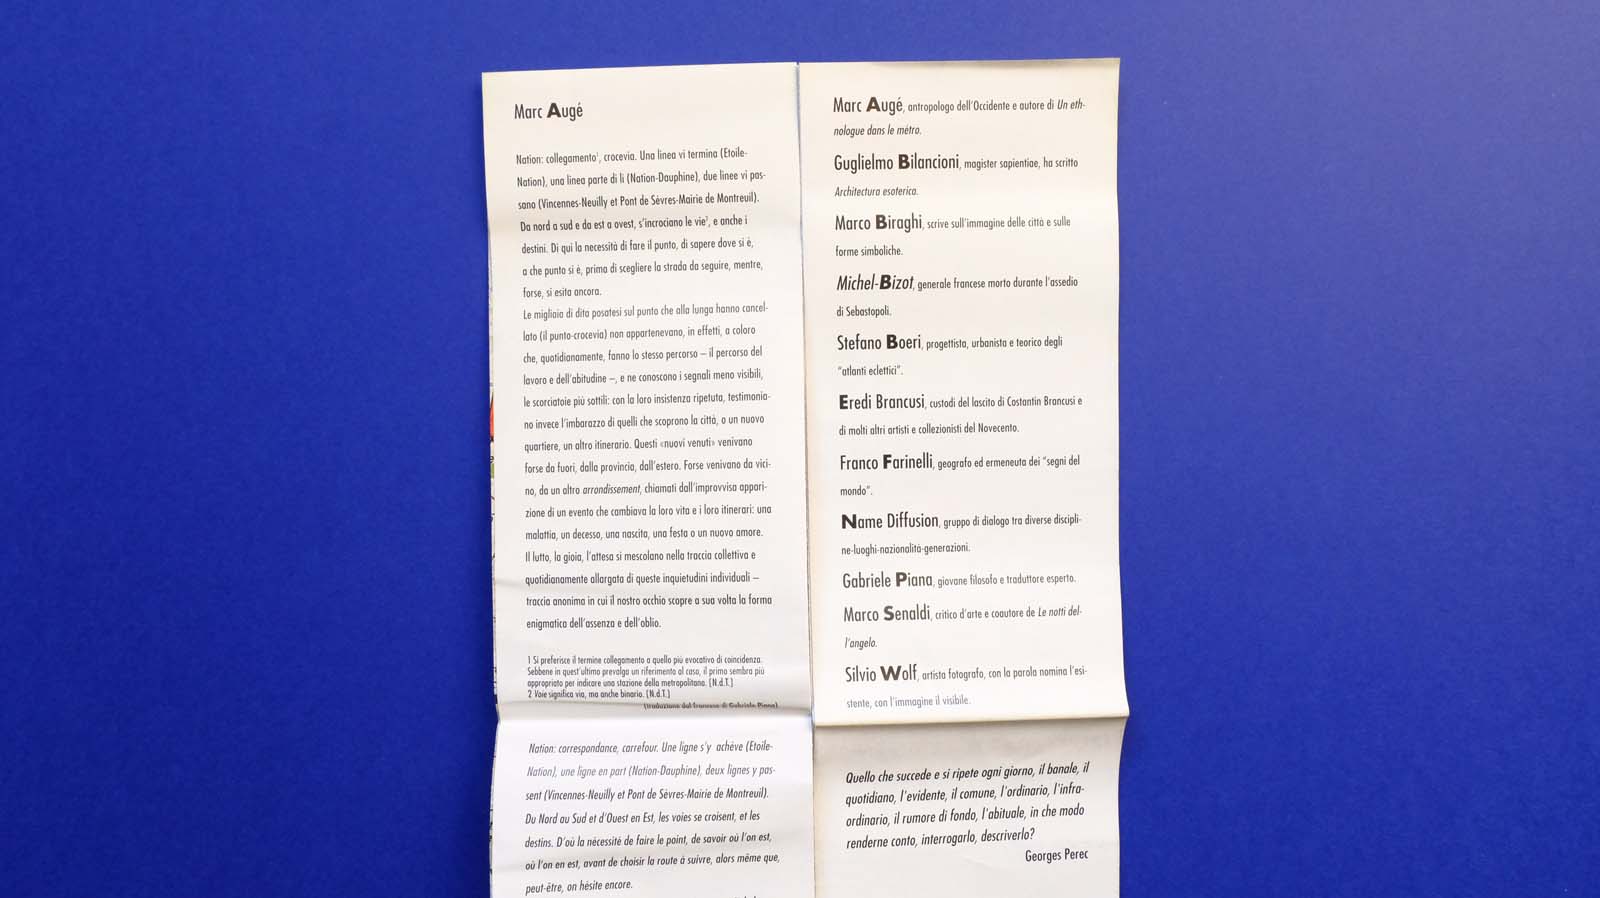 Marc Augé
Nation: collegamento¹, crocevia. Una linea vi termina (Etoile-
Nation), una linea parte di lì (Nation-Dauphine), due linee vi pas-
sano (Vincennes-Neuilly et Pont de Sèvres-Mairie de Montreuil).
Da nord a sud e da est a ovest, s'incrociano le vie², e anche i
destini. Di qui la necessità di fare il punto, di sapere dove si è,
a che punto si è, prima di scegliere la strada da seguire, mentre,
forse, si esita ancora.
Le migliaia di dita posatesi sul punto che alla lunga hanno cancel-
lato (il punto-crocevia) non appartenevano, in effetti, a coloro
che, quotidianamente, fanno lo stesso percorso – il percorso del
lavoro e dell'abitudine –, e ne conoscono i segnali meno visibili,
le scorciatoie più sottili: con la loro insistenza ripetuta, testimonia-
no invece l'imbarazzo di quelli che scoprono la città, o un nuovo
quartiere, un altro itinerario. Questi «nuovi venuti» venivano
forse da fuori, dalla provincia, dall'estero. Forse venivano da vici-
no, da un altro arrondissement, chiamati dall'improvvisa appari-
zione di un evento che cambiava la loro vita e i loro itinerari: una
malattia, un decesso, una nascita, una festa o un nuovo amore.
Il lutto, la gioia, l'attesa si mescolano nella traccia collettiva e
quotidianamente allargata di queste inquietudini individuali –
traccia anonima in cui il nostro occhio scopre a sua volta la forma
enigmatica dell'assenza e dell'oblio.
1 Si preferisce il termine collegamento a quello più evocativo di coincidenza.
Sebbene in quest'ultimo prevalga un riferimento al caso, il primo sembra più
appropriato per indicare una stazione della metropolitana. [N.d.T.]
2 Voie significa via, ma anche binario. [N.d.T.]
(traduzione dal francese di Gabriele Piana)
Nation: correspondance, carrefour. Une ligne s'y achève (Etoile-
Nation), une ligne en part (Nation-Dauphine), deux lignes y pas-
sent (Vincennes-Neuilly et Pont de Sèvres-Mairie de Montreuil).
Du Nord au Sud et d'Ouest en Est, les voies se croisent, et les
destins. D'où la nécessité de faire le point, de savoir où l'on est,
où l'on en est, avant de choisir la route à suivre, alors même que,
peut-être, on hésite encore.
Marc Augé, antropologo dell'Occidente e autore di Un eth-
nologue dans le métro.
Guglielmo Bilancioni, magister sapientiae, ha scritto
Architectura esoterica.
Marco Biraghi, scrive sull'immagine delle città e sulle
forme simboliche.
Michel-Bizot, generale francese morto durante l'assedio
di Sebastopoli.
Stefano Boeri, progettista, urbanista e teorico degli
"atlanti eclettici".
Eredi Brancusi, custodi del lascito di Costantin Brancusi e
di molti altri artisti e collezionisti del Novecento.
Franco Farinelli, geografo ed ermeneuta dei "segni del
mondo".
Name Diffusion, gruppo di dialogo tra diverse discipli-
ne-luoghi-nazionalità-generazioni.
Gabriele Piana, giovane filosofo e traduttore esperto.
Marco Senaldi, critico d'arte e coautore de Le notti del-
l'angelo.
Silvio Wolf, artista fotografo, con la parola nomina l'esi-
stente, con l'immagine il visibile.
Quello che succede e si ripete ogni giorno, il banale, il
quotidiano, l'evidente, il comune, l'ordinario, l'infra-
ordinario, il rumore di fondo, l'abituale, in che modo
renderne conto, interrogarlo, descriverlo?
Georges Perec